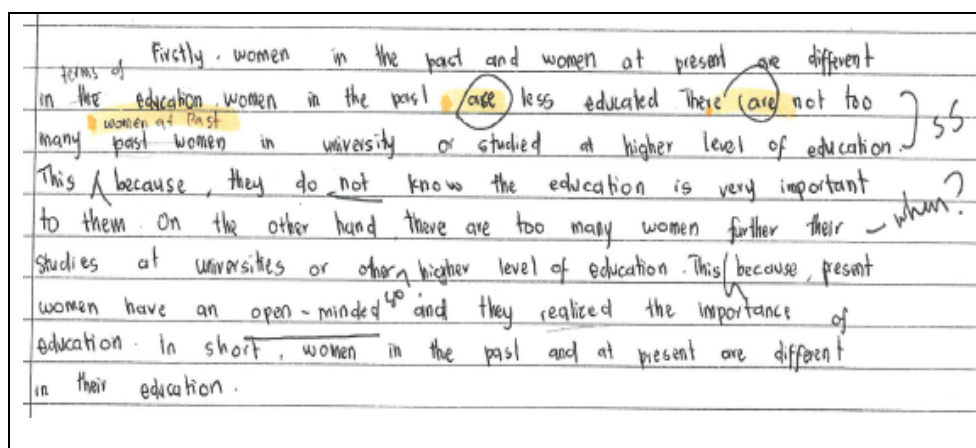 Firstly. women in the past and women at present are different
terms of
in the education. women in the past are less educated There (are) not too
women at Past
many past women in university or studied at higher level of education. SS
This because, they do not know the education is very important
to them. On the other hand there are too many women further their when?
studies at universities or other higher level of education. This because, present
women have an open-minded and they realized the importance of
education. In short, women in the past and at present are different
in their education.